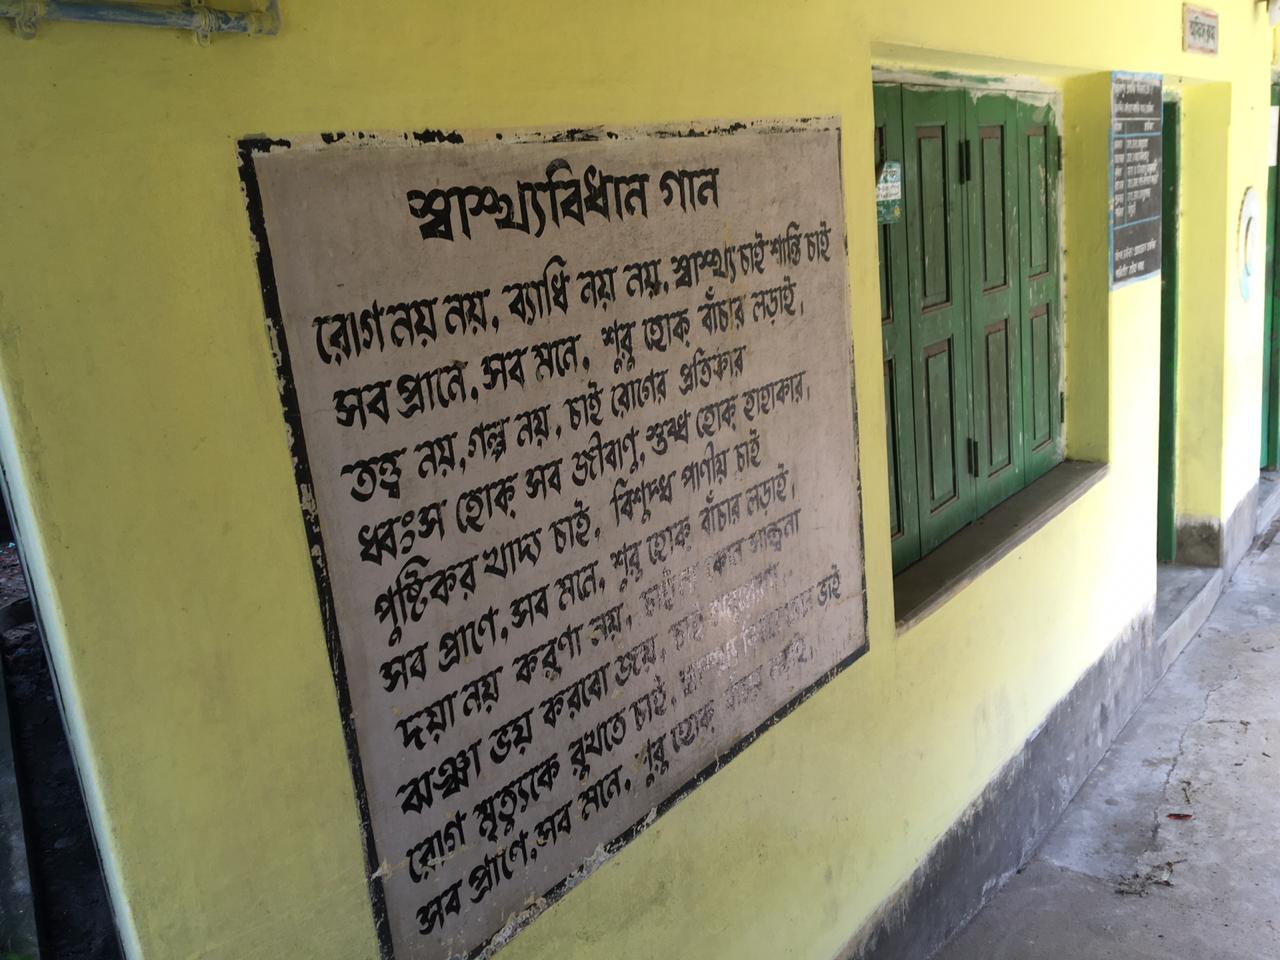 স্বাস্থ্যবিধান গান
রোগ নয় নয়, ব্যাধি নয় নয়, স্বাস্থ্য চাই শান্তি চাই
সব প্রানে, সব মনে, শুরু হোক্ বাঁচার লড়াই,
তত্ত্ব নয়, গল্প নয়, চাই রোগের প্রতিকার
ধ্বংস হোক্ সব জীবাণু, স্তব্ধ হোক্ হাহাকার,
পুষ্টিকর খাদ্য চাই, বিশুদ্ধ পাণীয় চাই
সব প্রাণে, সব মনে, শুরু হোক্ বাঁচার লড়াই,
দয়া নয় করুণা নয়, চাই না কোন সান্ত্বনা
ঝঞ্ঝা ভয় করবো জয়, চাই
রোগ মৃত্যুকে রুখতে চাই, ভাই
সব প্রাণে, সব মনে, শুরু হোক্ বাঁচার লড়াই,